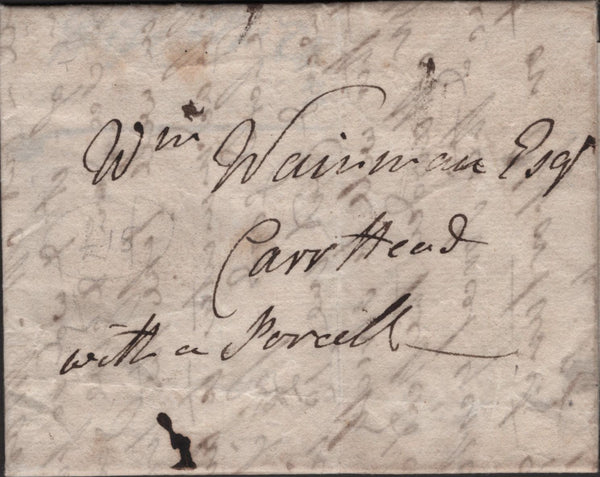 Wm Wainman Esqr
Carr Head
with a Parcell